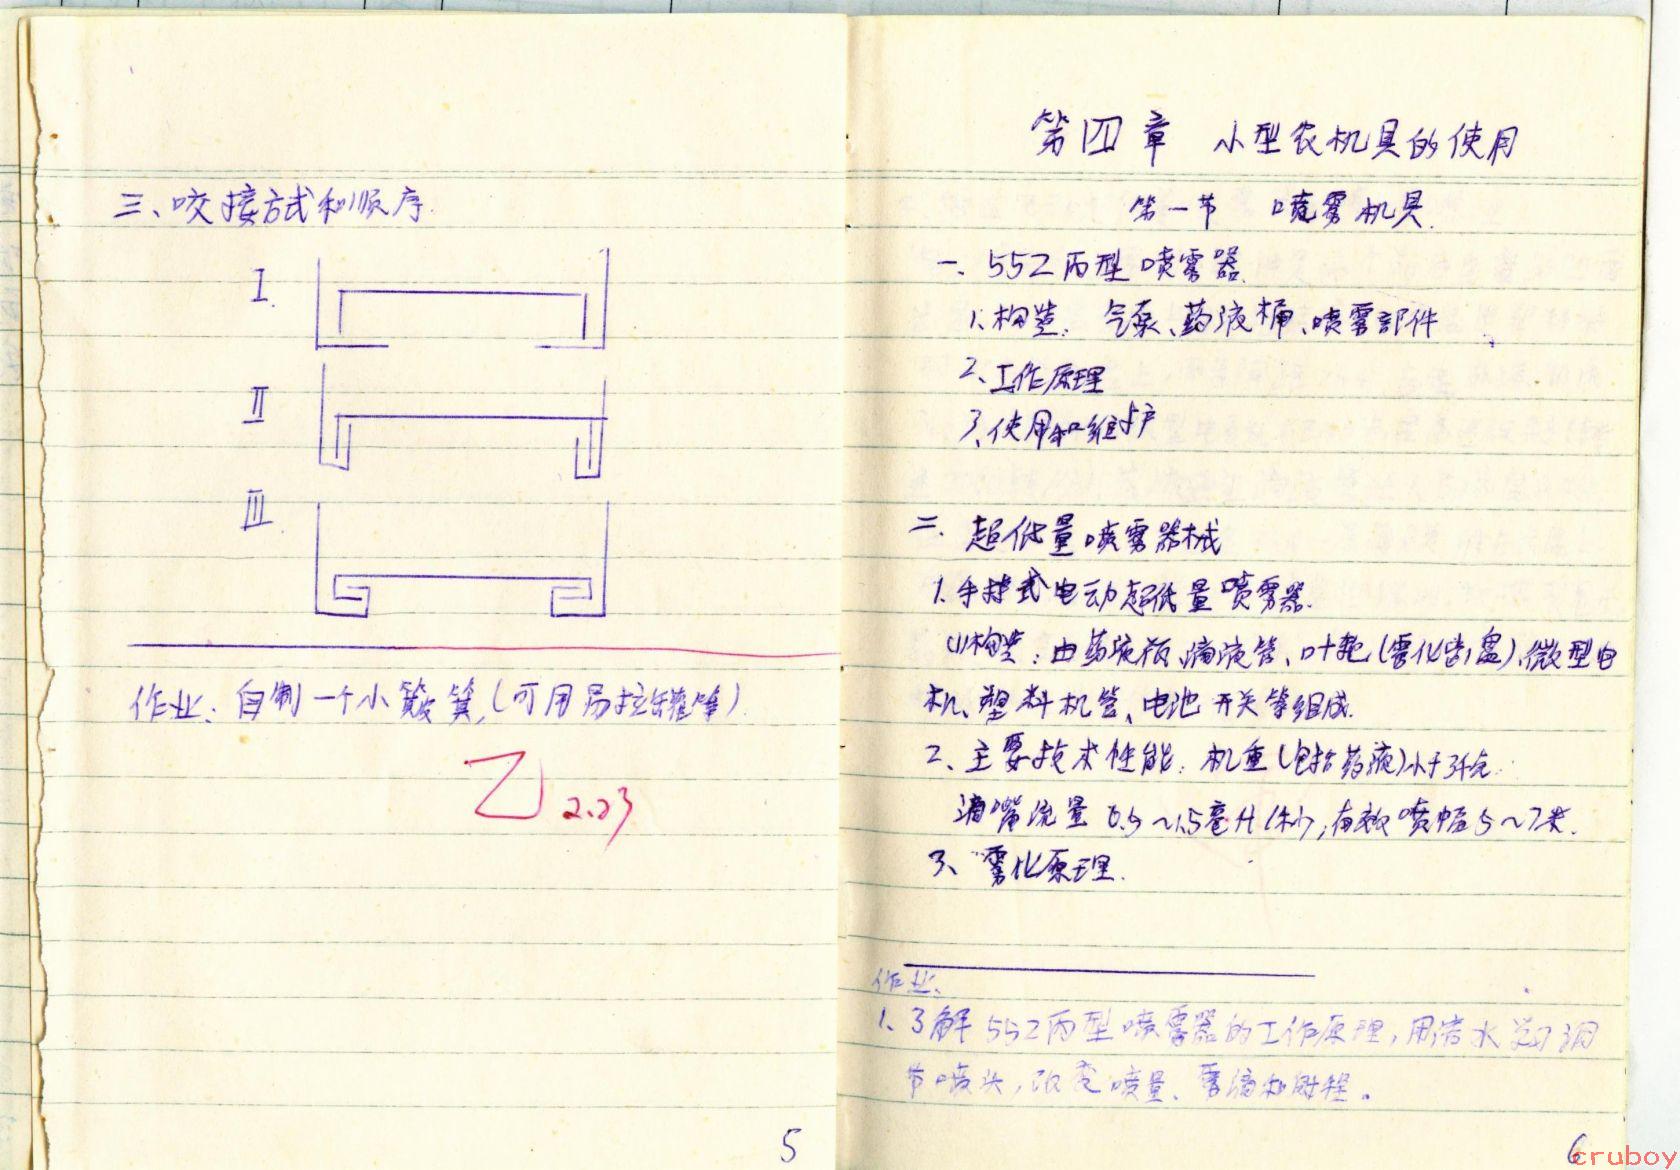 三、咬接方式和顺序.
I.
II
III.
作业: 自制一个小簸箕,(可用易拉罐等).
乙 2.23
5
第四章 小型农机具的使用
第一节 喷雾机具.
一、552丙型喷雾器.
1、构造: 气泵、药液桶、喷雾部件
2、工作原理
3、使用和维护
二. 超低量喷雾器械
1.手持式电动超低量喷雾器.
(1)构造: 由药液瓶、滴液管、叶轮(雾化齿盘)、微型电
机、塑料机管、电池开关等组成.
2、主要技术性能: 机重(包括药液)小于3千克.
滴嘴流量 0.5~1.5毫升/秒, 有效喷幅5~7米.
3、雾化原理.
作业:
1、了解552丙型喷雾器的工作原理, 用清水学习调
节喷头, 改变喷量、雾滴和射程。
6
cruboy